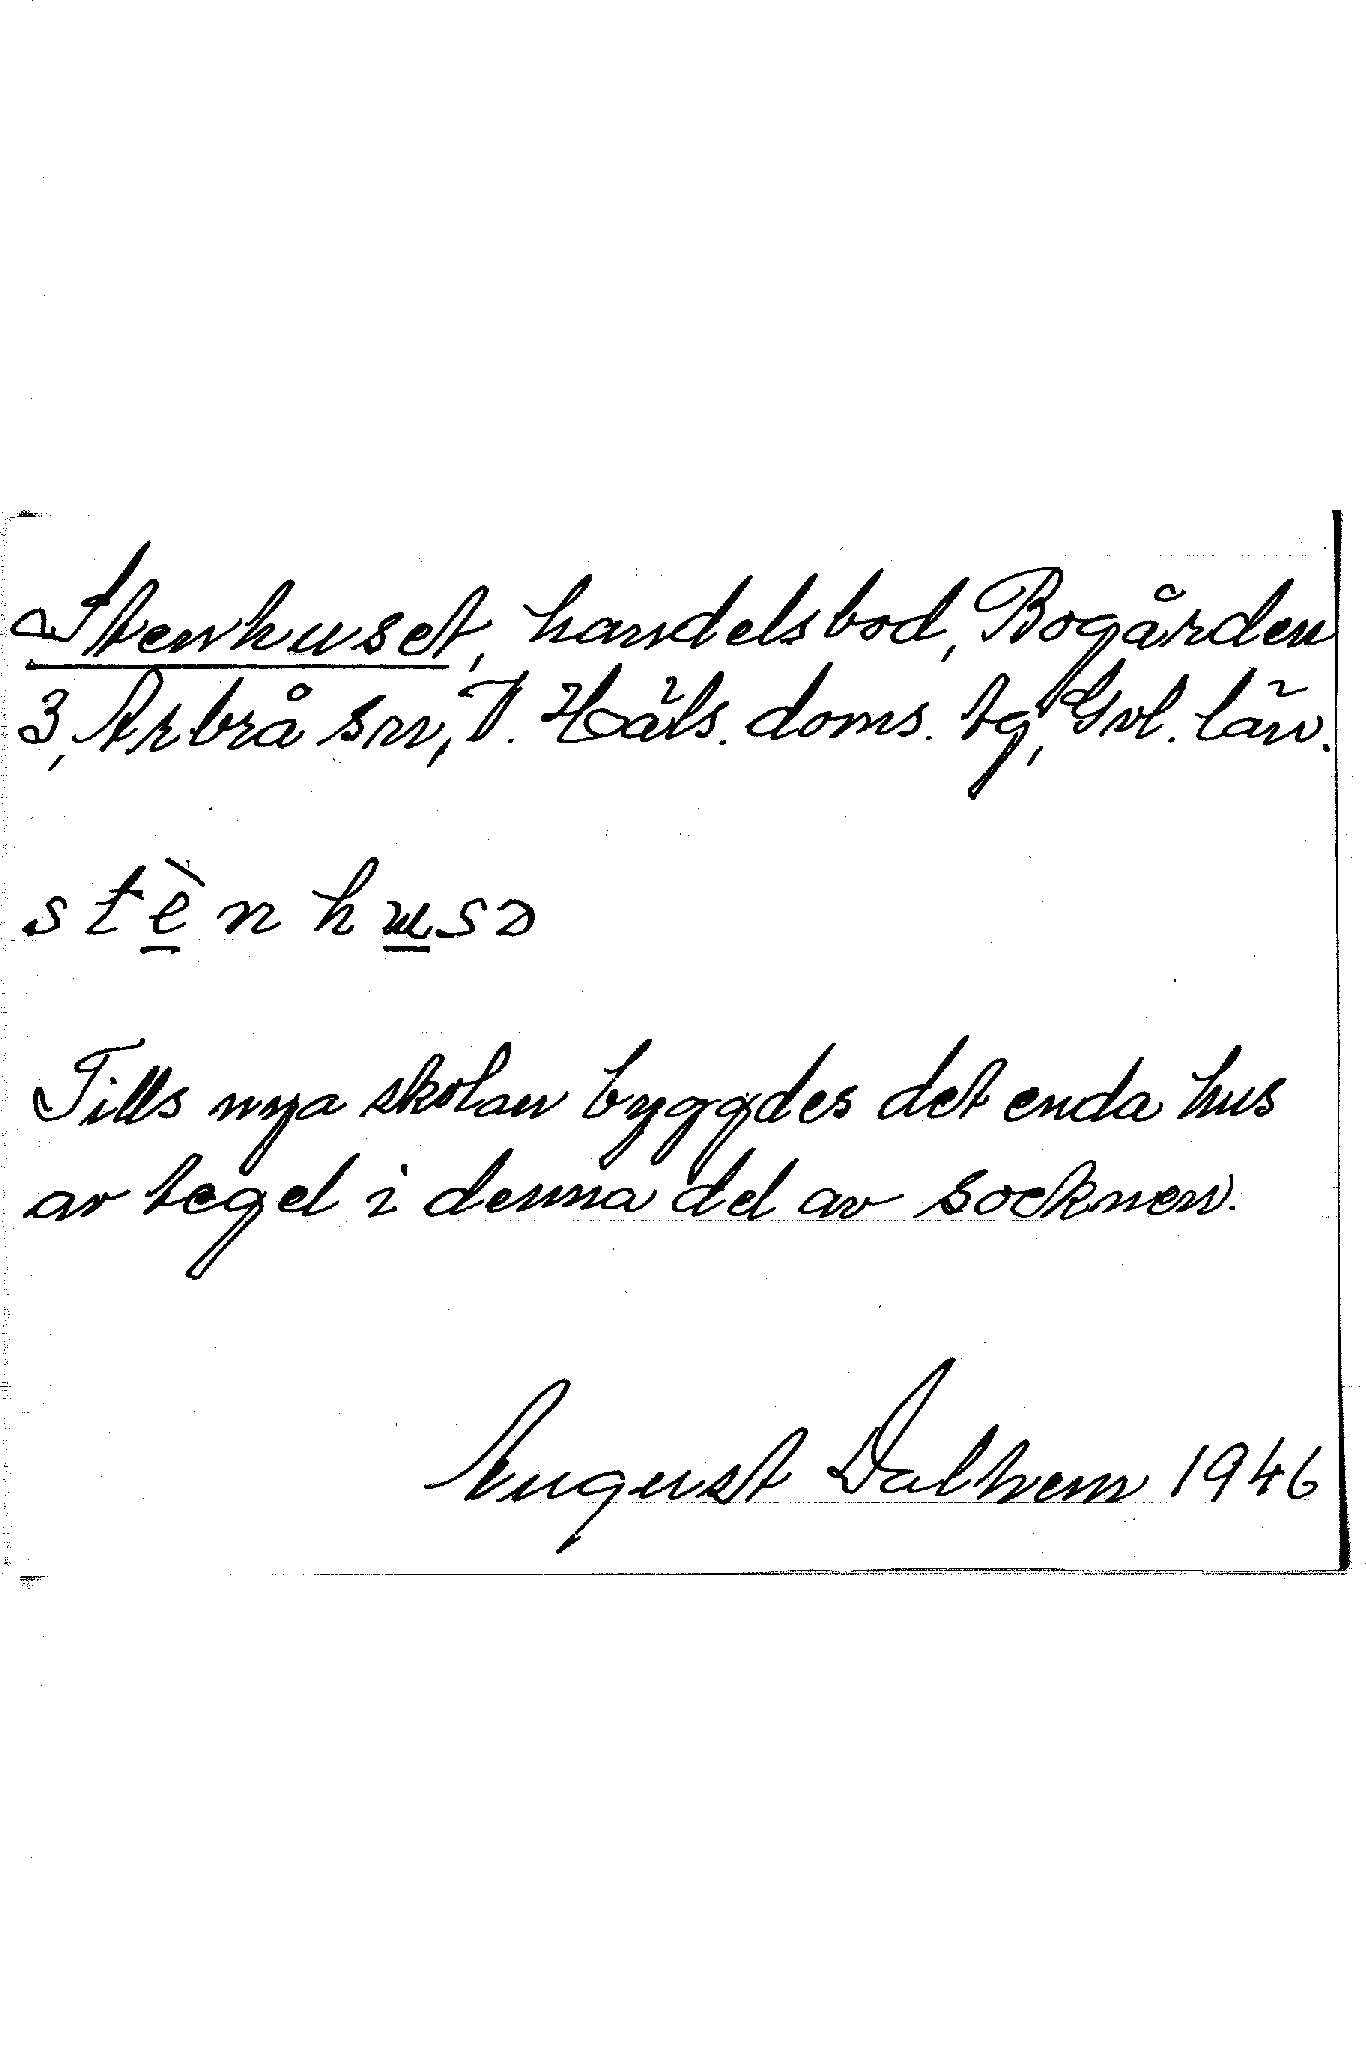 Stenhuset, handelsbod, Bogården
3, Arbrå sn, V. Häls. doms. tg, Gvl. län.
stènhusə
Tills nya skolan byggdes det enda hus
av tegel i denna del av socknen.
August Dalhem 1946